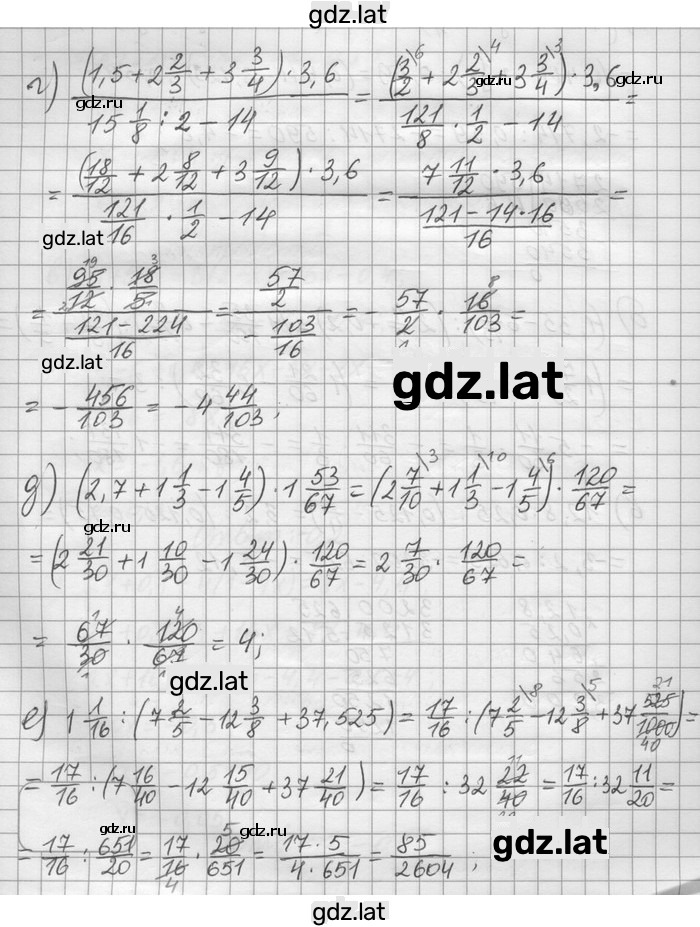 gdz.lat
г) ((1,5 + 2 2/3 + 3 3/4) · 3,6) / (15 1/8 : 2 − 14) = ((3/2\6 + 2 2/3\4 + 3 3/4\3) · 3,6) / (121/8 · 1/2 − 14) =
gdz.ru gdz.ru
= ((18/12 + 2 8/12 + 3 9/12) · 3,6) / (121/16 · 1/2 − 14) = (7 11/12 · 3,6) / ((121 − 14 · 16)/16) =
gdz.lat gdz.ru
= (95/12 · 18/5) / ((121 − 224)/16) = (57/2) / (− 103/16) = − 57/2 · 16/103 =
19 3 2 1 1 8
gdz.lat
= − 456/103 = − 4 44/103 ;
gdz.lat
д) (2,7 + 1 1/3 − 1 4/5) · 1 53/67 = (2 7/10\3 + 1 1/3\10 − 1 4/5\6) · 120/67 =
gdz.ru gdz.ru
= (2 21/30 + 1 10/30 − 1 24/30) · 120/67 = 2 7/30 · 120/67 =
= 67/30 · 120/67 = 4;
1 4 1 1
gdz.lat
е) 1 1/16 : (7 2/5 − 12 3/8 + 37,525) = 17/16 : (7 2/5\8 − 12 3/8\5 + 37 525/1000) =
21 40
gdz.ru gdz.ru
= 17/16 : (7 16/40 − 12 15/40 + 37 21/40) = 17/16 : 32 22/40 = 17/16 : 32 11/20 =
11
= 17/16 : 651/20 = 17/16 · 20/651 = (17 · 5)/(4 · 651) = 85/2604 ;
5 4
gdz.ru gdz.lat
gdz.lat